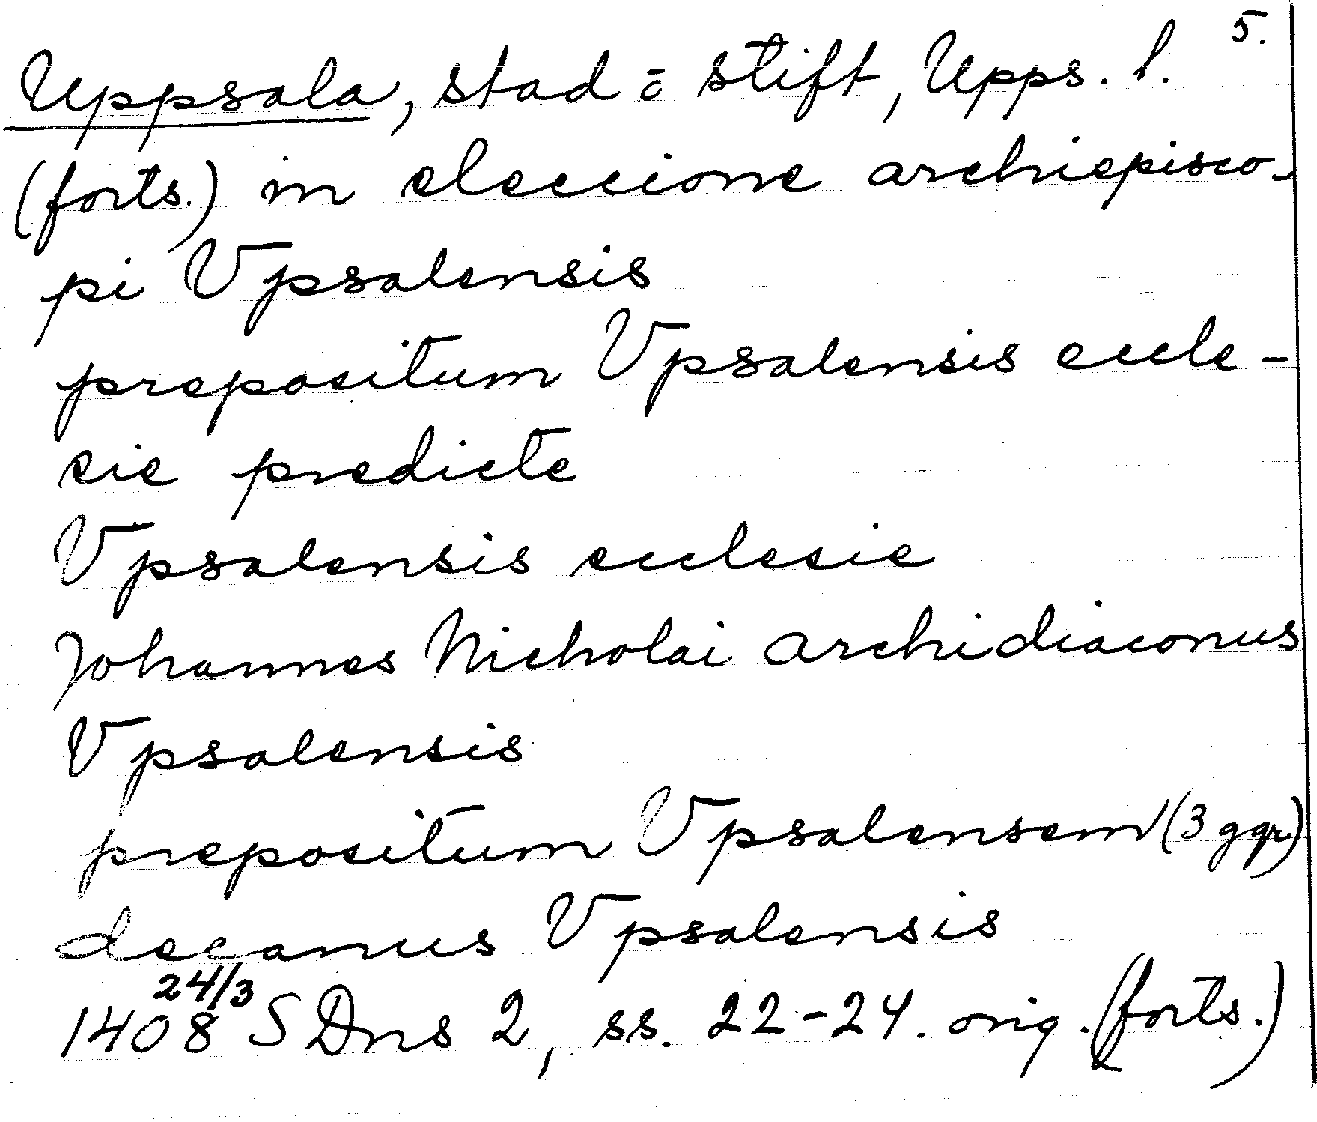 5.
Uppsala, stad = stift, Upps. l.
(forts.) in eleccione archiepisco-
pi Vpsalensis
prepositum Vpsalensis eccle-
sie predicte
Vpsalensis ecclesie
Johannes Nicholai archidiaconus
Vpsalensis
prepositum Vpsalensem (3 ggr)
decanus Vpsalensis
24/3
1408 SDns 2, ss. 22-24. orig. (forts.)